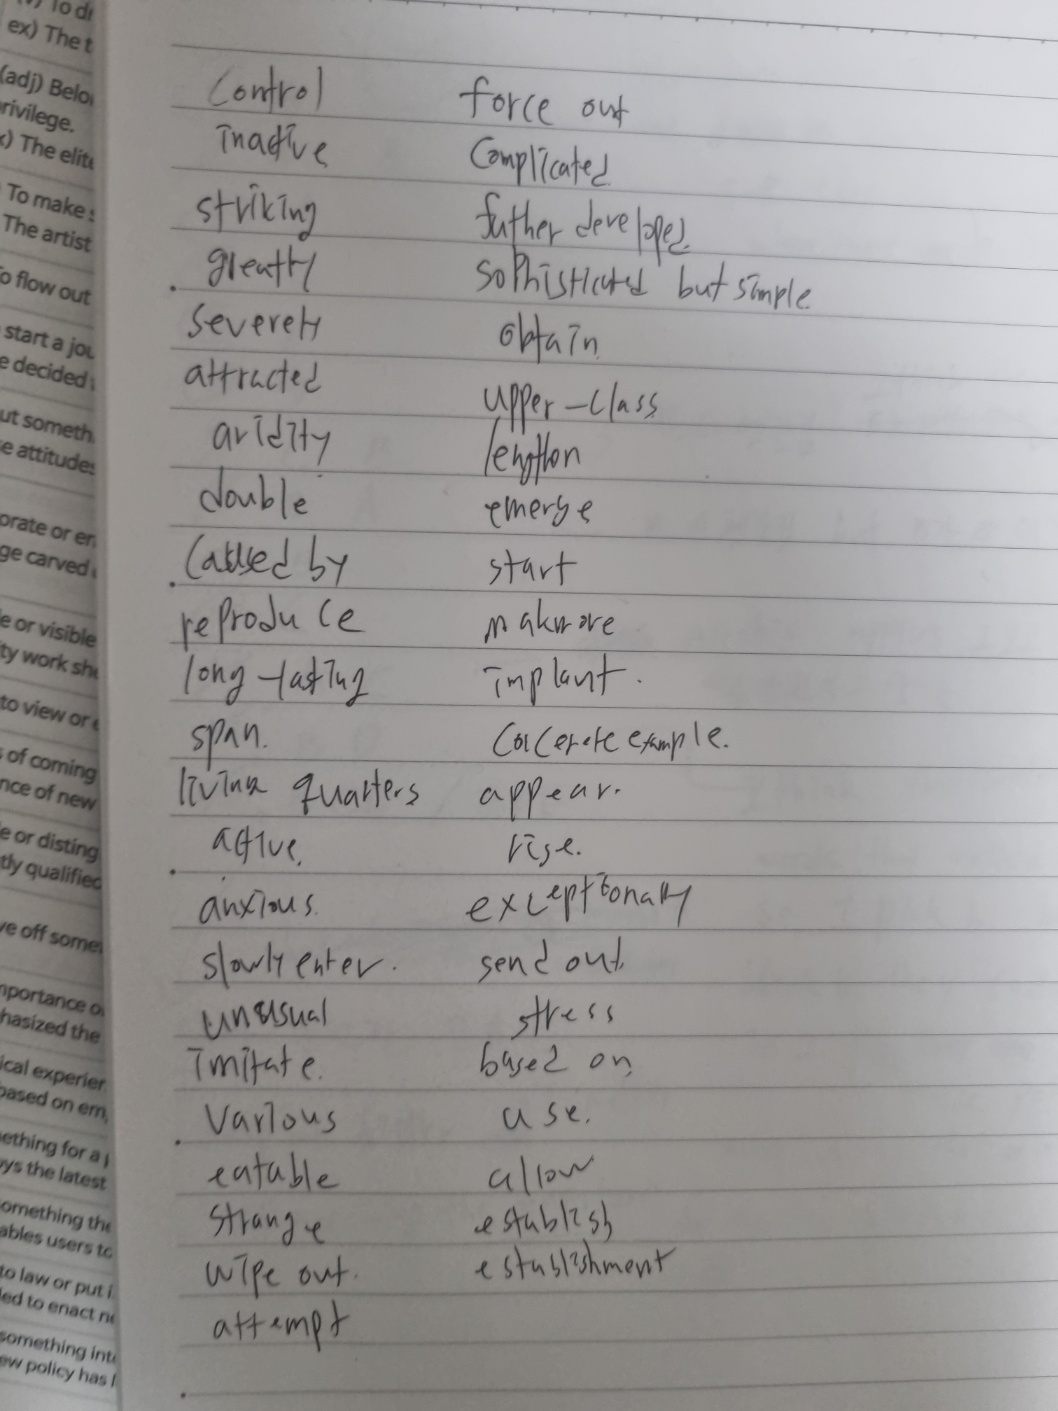 (v) To d
ex) The t
(adj) Belo
rivilege.
x) The elite
To make s
The artist
o flow out
start a jou
e decided
ut someth
e attitudes
orate or en
ge carved
le or visible
ity work sh
to view or e
s of coming
nce of new
le or disting
tly qualified
ve off some
mportance o
hasized the
ical experier
based on em
ething for a p
ys the latest
omething the
ables users to
to law or put i
led to enact ne
something into
ew policy has
control
inactive
striking
greatly
severely
attracted
aridity
double
caused by
reproduce
long-lasting
span.
living quarters
active.
anxious.
slowly enter.
unusual
imitate.
various
eatable
strange
wipe out.
attempt
force out
complicated
futher developed.
sophisticated but simple
obtain
upper-class
lengthen
emerge
start
makmore
implant.
concerete example.
appear.
rise.
exceptionally
send out.
stress
based on
use.
allow
establish
establishment